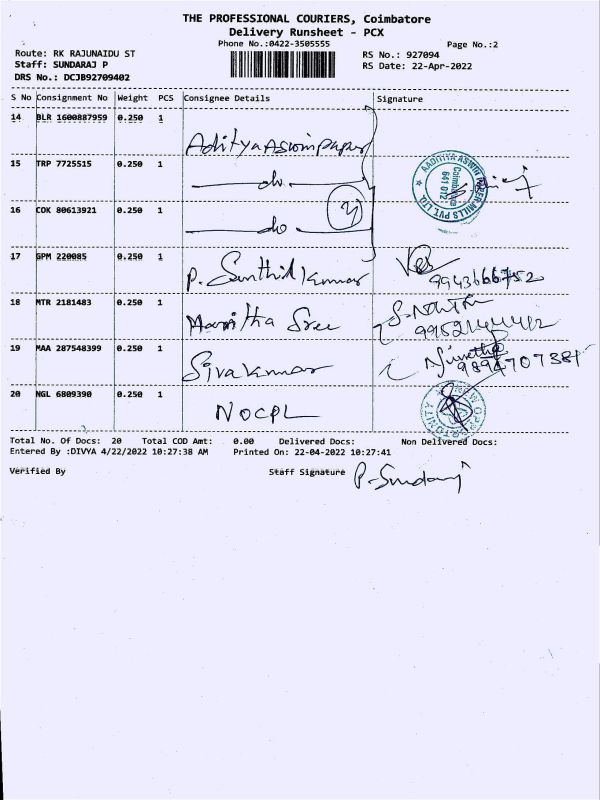 THE PROFESSIONAL COURIERS, Coimbatore
Delivery Runsheet - PCX
Phone No.:0422-3505555
Page No.:2
Route: RK RAJUNAIDU ST
RS No.: 927094
Staff: SUNDARAJ P
RS Date: 22-Apr-2022
DRS No.: DCJB92709402
S No Consignment No Weight PCS Consignee Details Signature
14 BLR 1600887959 0.250 1 Aditya Aswin paper
15 TRP 7725515 0.250 1 do
16 COK 80613921 0.250 1 do
AADITYA ASWIN PAPER MILLS PVT. LTD.
Coimbatore
641 012
17 GPM 220085 0.250 1 P. Senthil Kumar
9943666752
18 MTR 2181483 0.250 1 Haritha Sree
19 MAA 287548399 0.250 1 Sivakumar
9894707381
20 NGL 6809390 0.250 1 NOCPL
Total No. Of Docs: 20 Total COD Amt: 0.00 Delivered Docs: Non Delivered Docs:
Entered By :DIVYA 4/22/2022 10:27:38 AM Printed On: 22-04-2022 10:27:41
Verified By Staff Signature P. Sundaraj